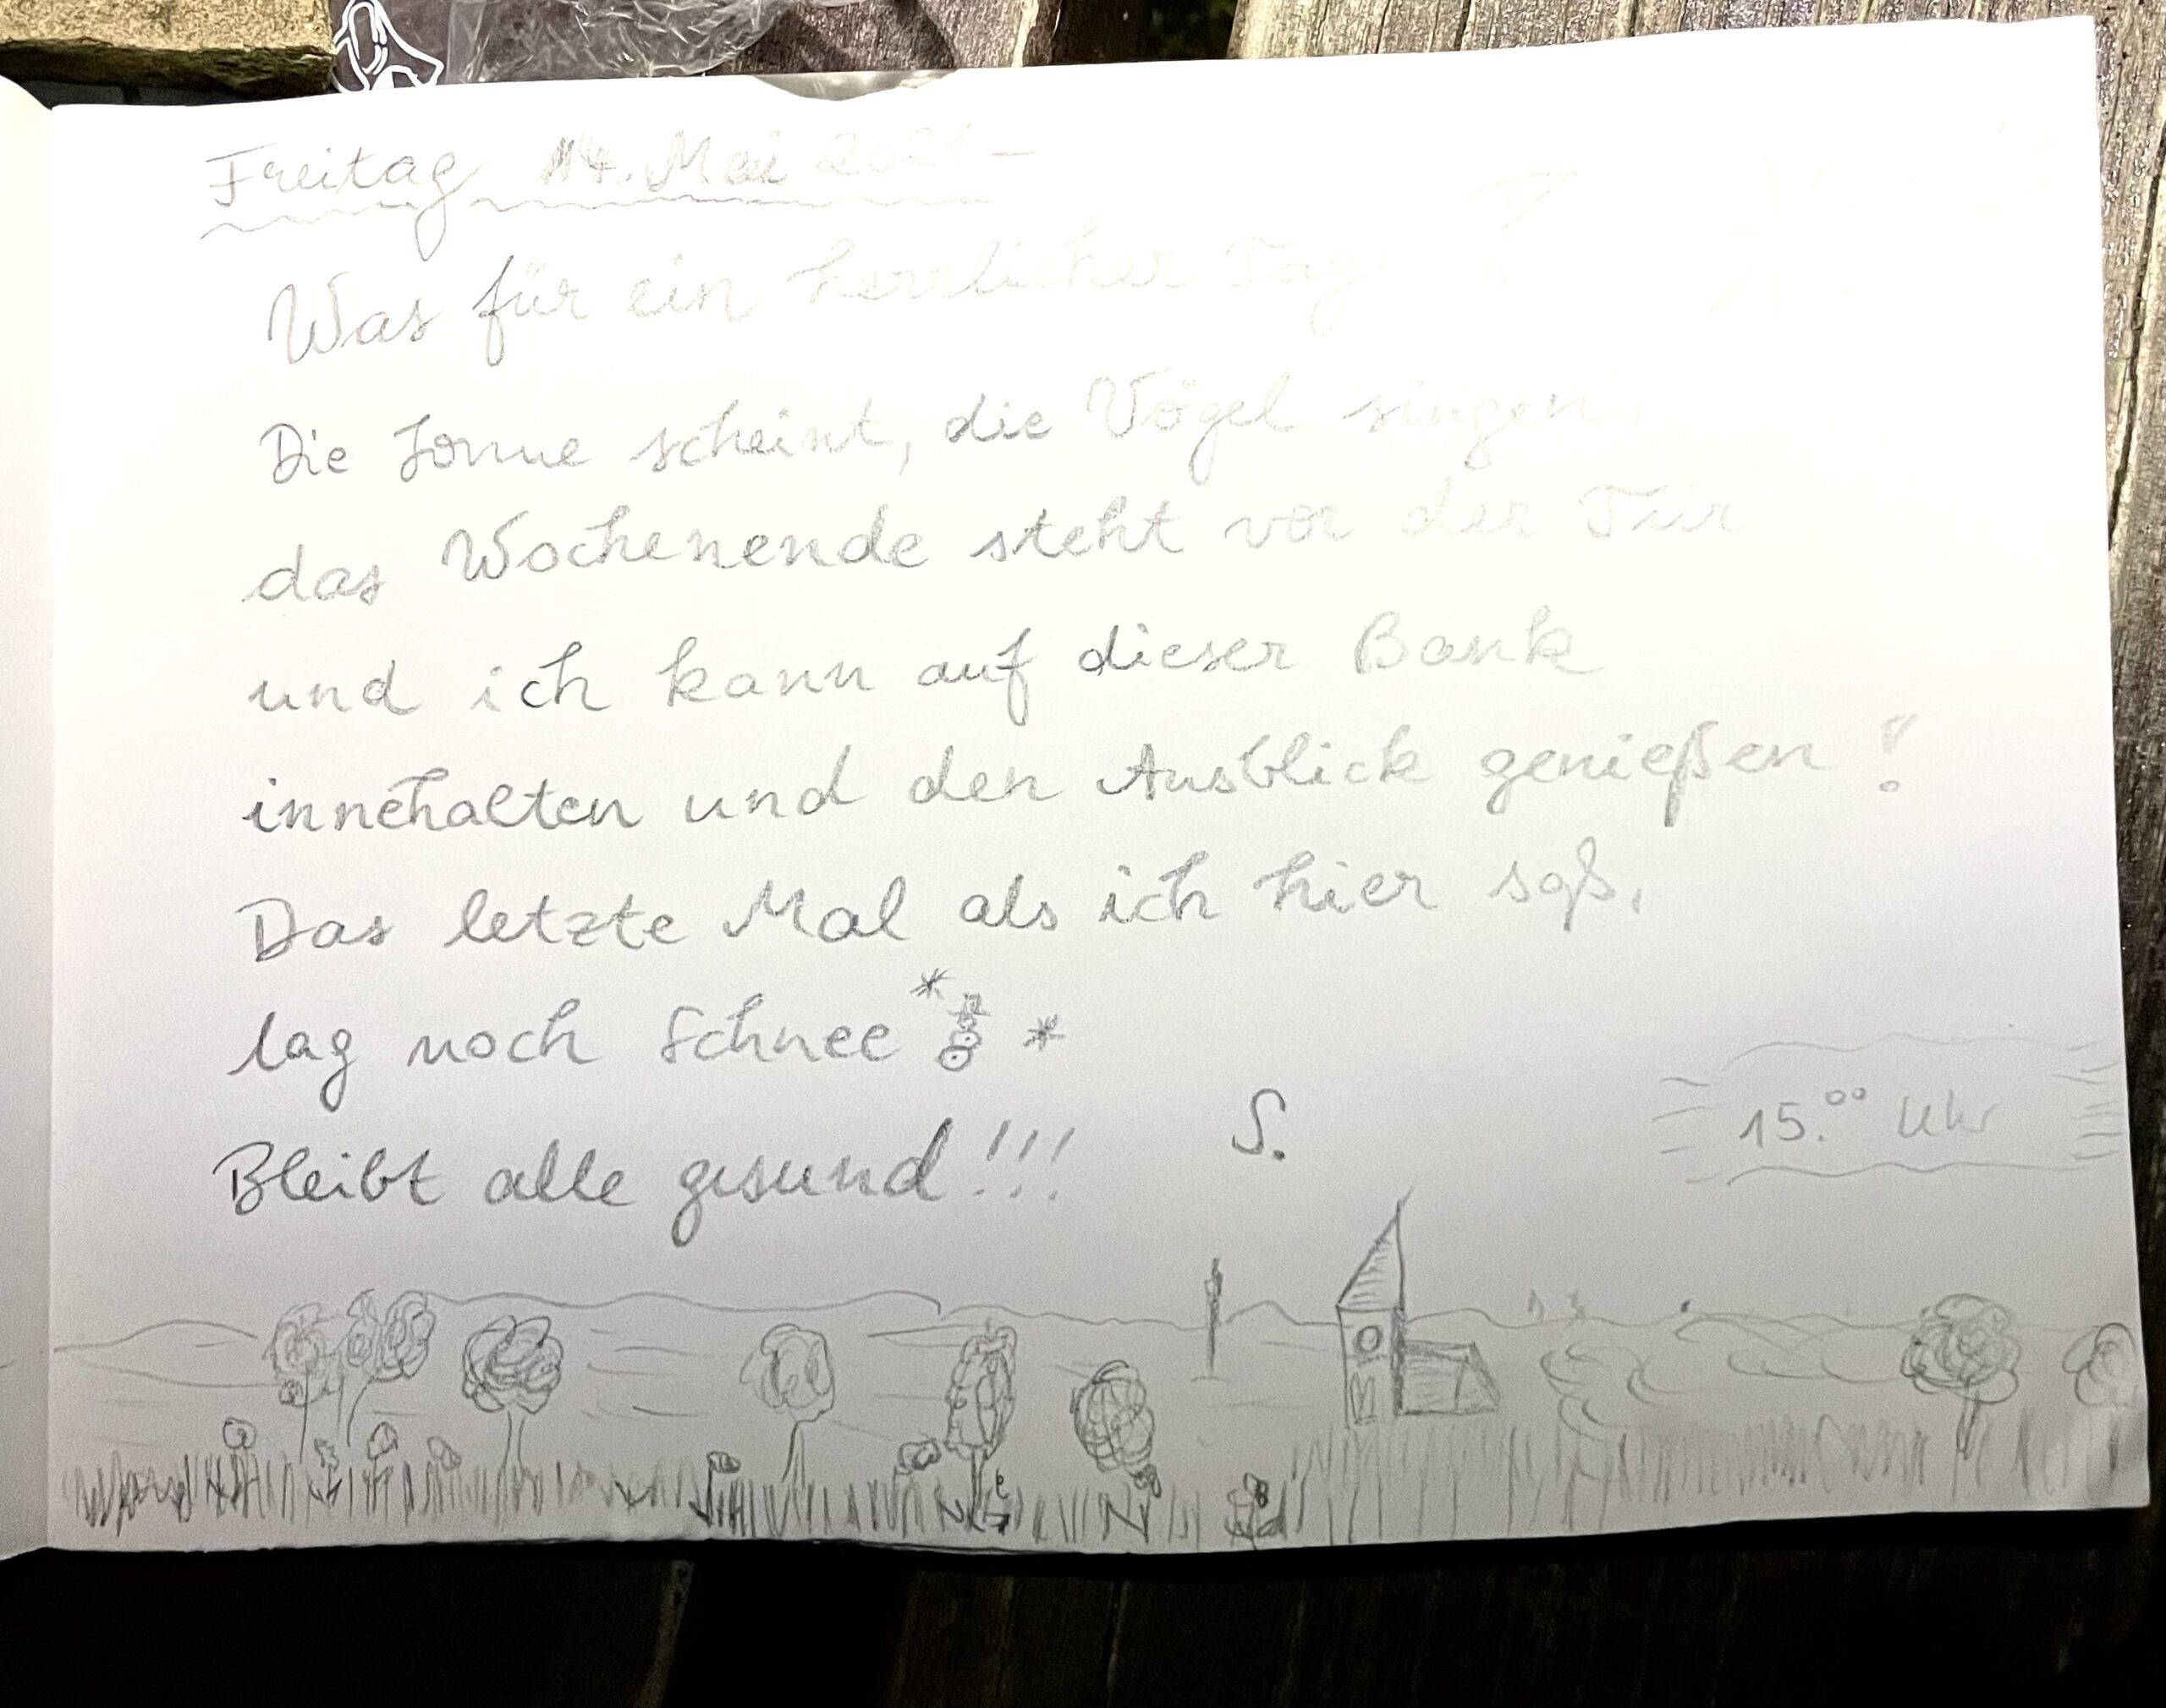 Freitag 14. Mai 2021
Was für ein herrlicher Tag
Die Sonne scheint, die Vögel singen,
das Wochenende steht vor der Tür
und ich kann auf dieser Bank
innehalten und den Ausblick genießen!
Das letzte Mal als ich hier saß,
lag noch Schnee
Bleibt alle gesund!!!
S.
15.00 Uhr